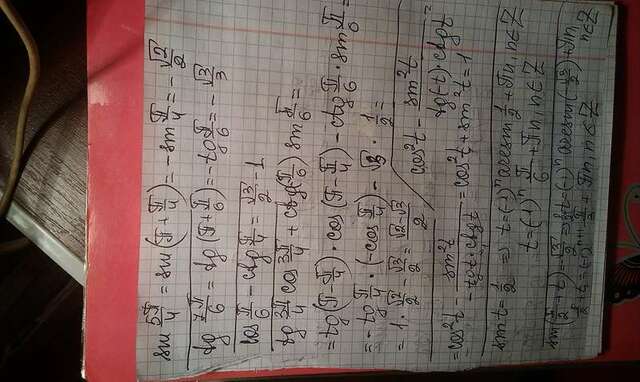 sin 5π/4 = sin(π + π/4) = -sin π/4 = -√2/2
tg 7π/6 = tg(π + π/6) = -tg π/6 = -√3/3
cos π/6 - ctg π/4 = √3/2 - 1
tg 3π/4 cos 3π/4 + ctg(π/6) sin π/6 =
= tg(π - π/4) · cos(π - π/4) - ctg π/6 · sin π/6 =
= -tg π/4 · (-cos π/4) - √3 · 1/2 =
= 1 · √2/2 - √3/2 = (√2 - √3)/2
cos²t - sin²t / tg(-t) ctgt =
= cos²t - sin²t / -tgt·ctgt = cos²t + sin²t = 1
sin t = 1/2 ⇒ t = (-1)ⁿ arcsin 1/2 + πn, n∋Z
t = (-1)ⁿ π/6 + πn, n∋Z
sin(π/2 + t) = √3/2 ⇒ t = (-1)ⁿ arcsin(√3/2) + πn, n∋Z
π/2 + t = (-1)ⁿ π/3 + πn, n∋Z